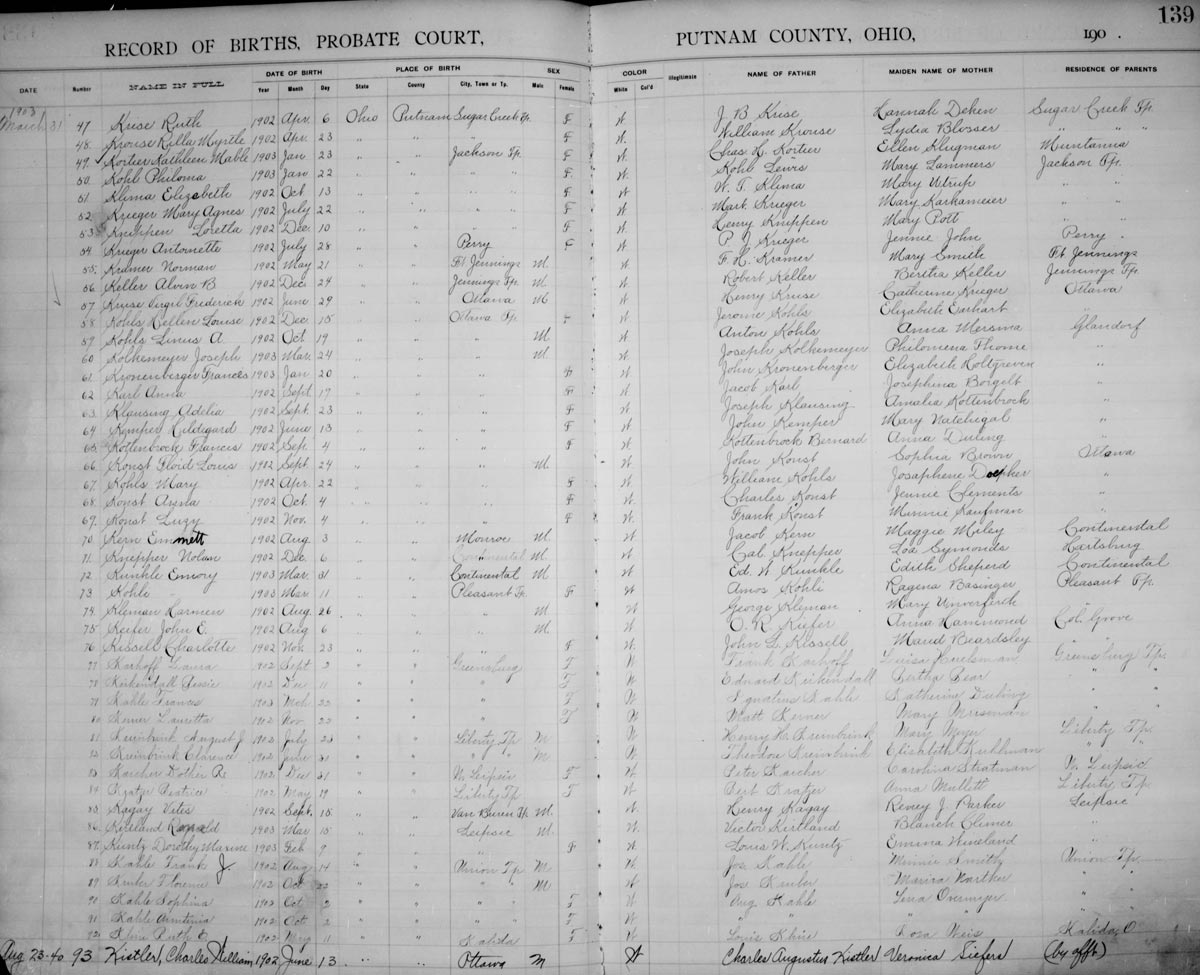 139
RECORD OF BIRTHS, PROBATE COURT, PUTNAM COUNTY, OHIO, 190 .
DATE Number NAME IN FULL DATE OF BIRTH Year Month Day PLACE OF BIRTH State County City, Town or Tp. SEX Male Female COLOR White Col'd Illegitimate NAME OF FATHER MAIDEN NAME OF MOTHER RESIDENCE OF PARENTS
1903
March 31 47 Kruse Ruth 1902 Apr. 6 Ohio Putnam Sugar Creek Tp. F W J B Kruse Hannah Deken Sugar Creek Tp
48. Krouse Rilla Myrtle 1902 Apr. 23 " " " " F W William Krouse Lydia Blosser " " "
49. Kortier Kathleen Mable 1903 Jan 23 " " Jackson Tp. F W Chas. H. Kortier Ellen Klugman Muntanna
50. Kohl Philoma 1903 Jan 22 " " " " F W Kohl Lewis Mary Lammers Jackson Tp.
51. Klima Elizebeth 1902 Oct 13 " " " " F W W. T. Klima Mary Utrup " "
52. Krieger Mary Agnes 1902 July 22 " " " " F W Mark Krieger Mary Karkameier " "
53. Knippen Loretta 1902 Dec 10 " " " " F W Henry Knippen Mary Pott " "
54. Krieger Antoinette 1902 July 28 " " Perry F W P. J. Krieger Jennie John Perry
55. Kramer Norman 1902 May 21 " " Ft Jennings M. W F. H. Kramer Mary Smith Ft Jennings
56 Keller Alvin B 1902 Dec 29 " " Jennings Tp. M W Robert Keller Bertha Keller Jennings Tp.
57 Kruse Virgil Frederick 1902 June 29 " " Ottawa M W Henry Kruse Catherine Krieger Ottawa
58. Kohls Hellen Louise 1902 Dec 15 " " Ottawa Tp. F W Jerome Kohls Elizabeth Earhart
59. Kohls Linus A. 1902 Oct 19 " " " M W Anton Kohls Anna Mersma Glandorf
60 Kolkemeyer Joseph 1903 Mar 24 " " " M W Joseph Kolkemeyer Philomena Thome "
61. Kronenberger Frances 1903 Jan 20 " " " F W John Kronenberger Elizabeth Holtgreven "
62 Karl Anna 1902 Sept 17 " " " F W Jacob Karl Josephina Borgelt "
63. Klausing Adelia 1902 Sept 23 " " " F W Joseph Klausing Amalia Kottenbrock "
64 Kemper Hildegard 1902 June 13 " " " F W John Kemper Mary Natehugal "
65. Kottenbrock Francis 1902 Sep. 4 " " " F W Kottenbrock Bernard Anna "
66. Konst Floid Louis 1902 Sept 24 " " " M. W John Konst Sophia Brown Ottawa
67. Kohls Mary 1902 Apr. 22 " " " F W William Kohls Josaphene "
68. Konst Anna 1902 Oct. 4 " " " F W Charles Konst Jennie Clements "
69. Konst Luzy 1902 Nov. 4 " " " F W Frank Konst Minnie Kaufman "
70. Kern Emmett 1902 Aug 3 " " Monroe M. W Jacob Kern Maggie Miley Continental
71. Knepper Nolan 1902 Dec 6 " " Continental M. W Cal. Knepper Loa Symonds Hartsburg
72. Kunkle Emory 1903 Mar 31 " " Continental M W Ed. W Kunkle Edith Sheperd Continental
73. Kohli 1903 Mar 11 " " Pleasant Tp. F W Amos Kohli Ragena Basinger Pleasant Tp.
74. Kleman Harmen 1902 Aug. 26 " " " M W George Kleman Mary Unverferth "
75. Keifer John E. 1902 Aug 6 " " " M. W O. R. Kiefer Anna Hammond Col. Grove
76 Kissell Charlotte 1902 Nov. 23 " " " F W John L. Kissell Maud Beardsley "
77 Karhoff Laura 1902 Sept 2 " " Greensburg F W Frank Karhoff Luisa Huelsman Greensburg Tp.
78. Kirkendall Bessie 1902 Dec 11 " " " F W Edward Kirkendall Bertha Bear " "
79 Kahle Frances 1903 Mch 22 " " " F W Ignatius Kahle Katherine " "
80 Kerner Lauretta 1902 Nov. 22 " " " F W Matt Kerner Mary " "
81 Kreinbrink August J 1902 July 23 " " Liberty Tp M W Henry H. Kreinbrink Mary Meyer Liberty Tp
82 Kreinbrink Clarence 1902 June 21 " " " " M W Theodore Kreinbrink Elisabeth Kuhlman " "
83 Karcher Dother R. 1902 Dec 31 " " W. Leipsic F W Peter Karcher Carolina Stratman W. Leipsic
84 Kratzr 1902 May 19 " " Liberty Tp F W Bert Kratzer Anna Mullett Liberty Tp.
85 Kagay Vites 1902 Sept. 15 " " Van Buren Tp. M. W Henry Kagay Reney J. Parker Leipsic
86. Kirtland Ronald 1903 Mar 15 " " Leipsic M. W Victor Kirtland Blanch Climer "
87. Kuntz Dorothy Maxine 1903 Feb 9 " " " F W Louis W. Kuntz Emma Wineland "
88 Kahle Frank J. 1902 Aug 14 " " Union Tp M W Jos. Kahle Minnie Smithy Union Tp.
89 Florenz 1902 Oct 22 " " " M W Jos. Maria "
90 Kahle Sophina 1902 Oct 2 " " " F W Aug Kahle Lena Overmyer "
91 Kahle 1902 Oct 2 " " " F W " " " " "
92 Ruth E. 1902 May 11 " " Kalida F W Louis Rosa Kalida, O
Aug 23-40 93 Kistler, Charles William 1902 June 13 " " Ottawa M W Charles Augustus Kistler Veronica Siefers (by afft)